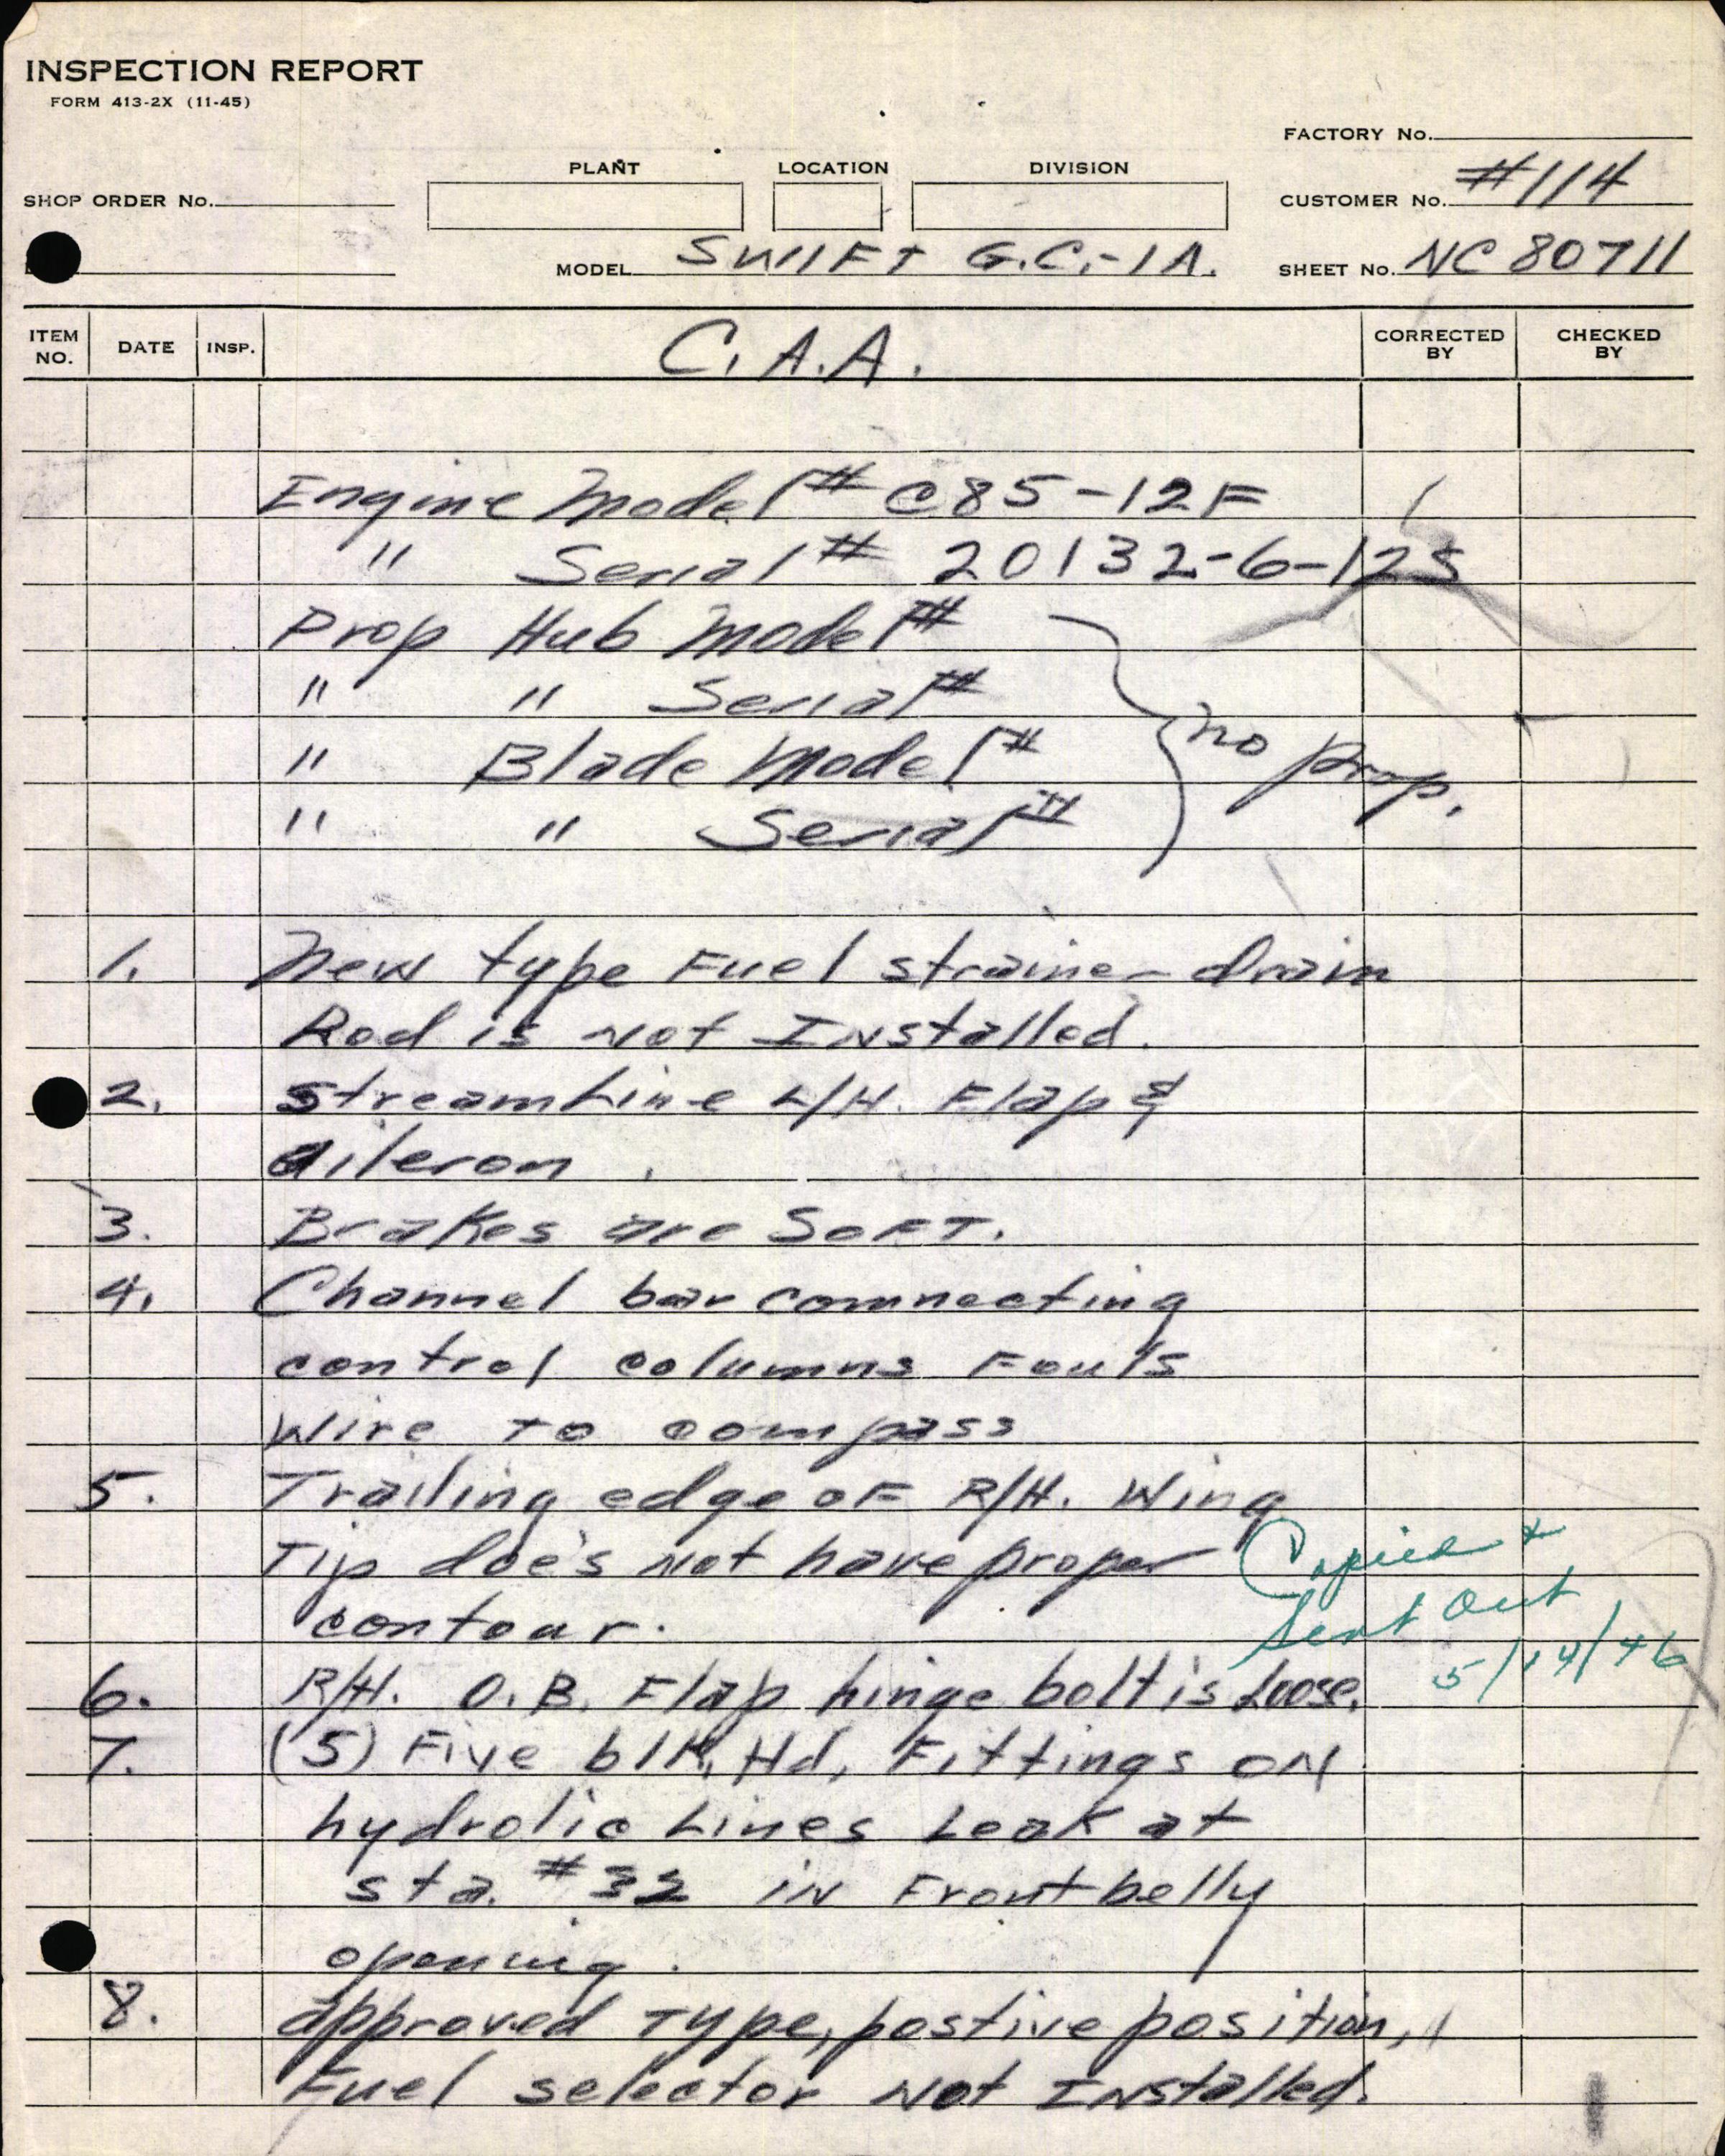 INSPECTION REPORT
FORM 413-2X (11-45)
FACTORY No.
PLANT LOCATION DIVISION
SHOP ORDER No.
CUSTOMER No. #114
MODEL SWIFT G.C.-1A.
SHEET No. NC 80711
ITEM NO. DATE INSP. C.A.A. CORRECTED BY CHECKED BY
Engine Model # C85-12F
" Serial # 20132-6-12S
Prop Hub Model #
" " Serial #
" Blade Model #
no prop.
" " Serial #
1. New type Fuel strainer drain
Rod is not Installed.
2. streamline L/H. Flap &
aileron.
3. Brakes are SOFT.
4. Channel bar comnecting
control columns Fouls
Wire to compass
5. Trailing edge of R/H. Wing
Tip doe's not have proper
contour.
Copied &
Sent Out
5/14/46
6. R/H. O.B. Flap hinge bolt is Loose.
7. (5) Five blk, Hd, Fittings ON
hydrolic Lines Leak at
sta. #32 in Front belly
opening.
8. approved Type, postive position,
Fuel selector Not Installed.